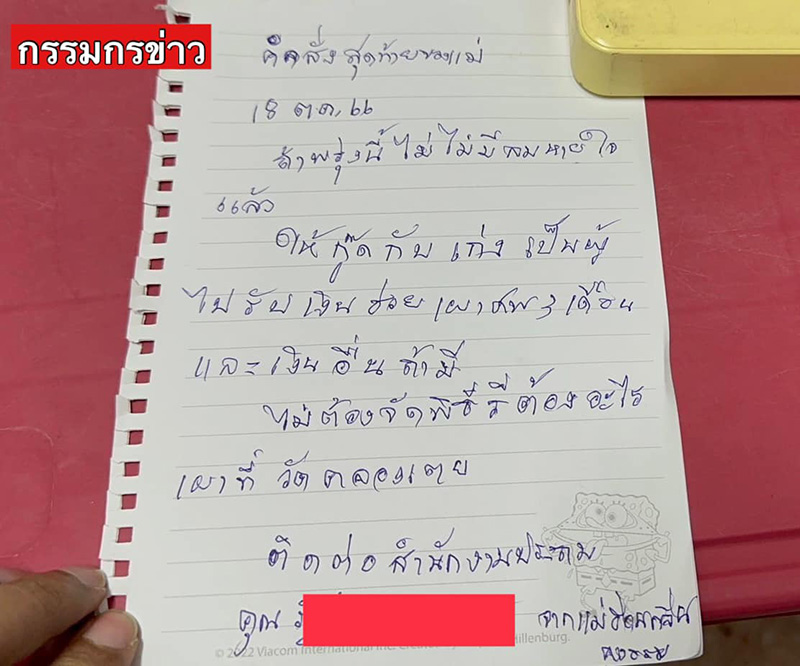 กรรมกรข่าว
คำสั่งสุดท้ายของแม่
18 ต.ค. 66
ถ้าพรุ่งนี้ ไม่ ไม่มีลมหายใจ
แล้ว
ให้ กู๊ด กับ เก่ง เป็นผู้
ไปรับเงินช่วยเผาศพ 3 เดือน
และเงินอื่น ถ้ามี
ไม่ต้องจัดพิธีรีต้องอะไร
เผาที่ วัดคลองเตย
ติดต่อสำนักงานประกม
คุณ
จากแม่
© 2022 Viacom International Inc. Created by Hillenburg.